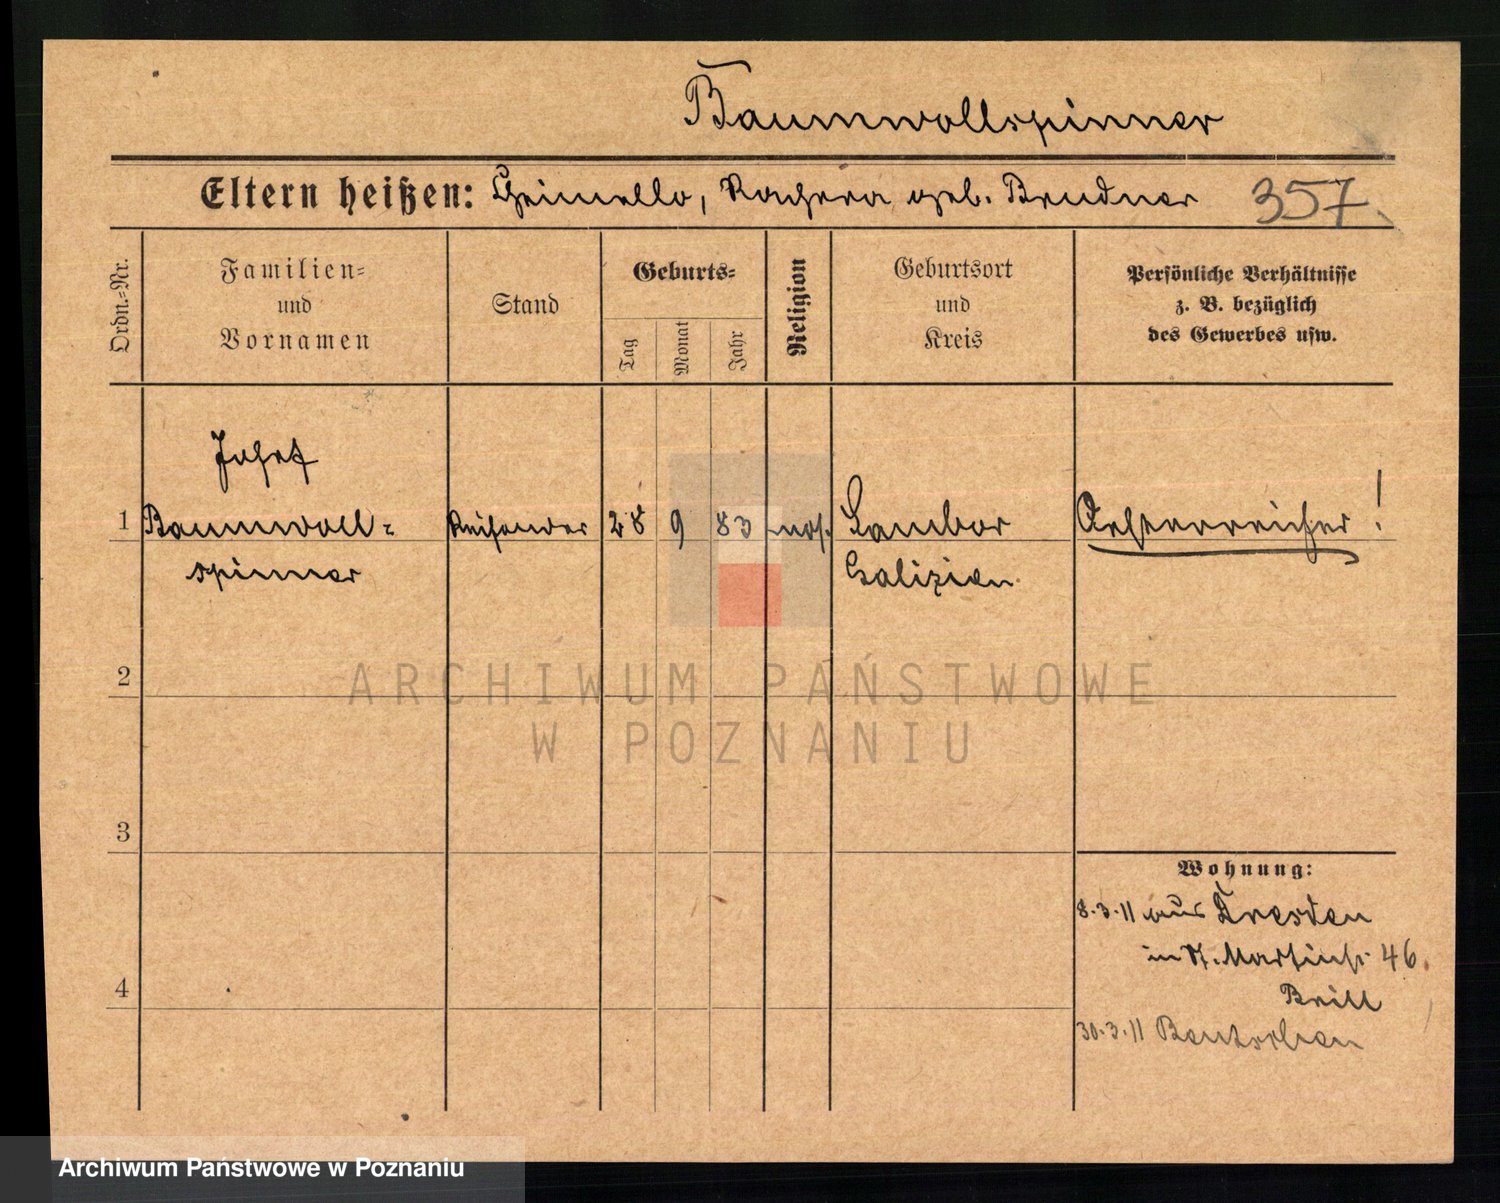 Baumwollspinner
Eltern heißen: geb. Brudner 357.
Ordn.-Nr.
Familien-
und
Vornamen
Stand
Geburts-
Tag
Monat
Jahr
Religion
Geburtsort
und
Kreis
Persönliche Verhältnisse
z. B. bezüglich
des Gewerbes usw.
Josef
1 Baumwoll- Reisender 28 9 83 mos. Sambor Oesterreicher!
spinner Galizien.
2
ARCHIWUM PAŃSTWOWE
W POZNANIU
3
Wohnung:
8.3.11 aus Dresden
in St. Martinstr. 46.
Brill
4
30.3.11 Bentschen
Archiwum Państwowe w Poznaniu